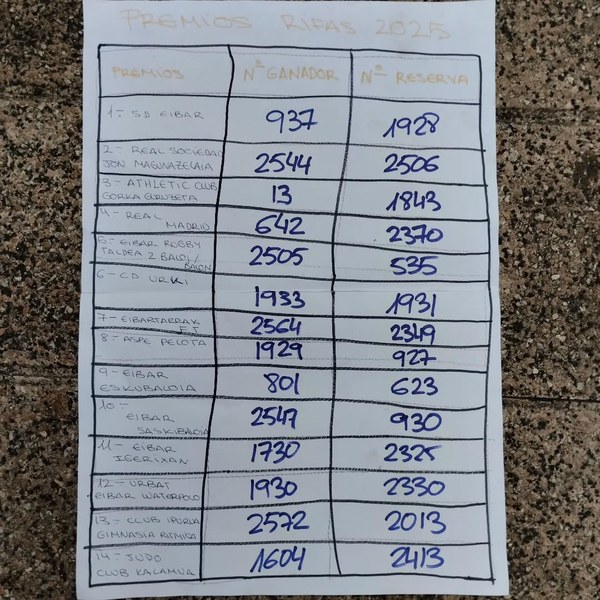 PREMIOS RIFAS 2025
PREMIOS Nº GANADOR Nº RESERVA
1-- SD EIBAR 937 1928
2- REAL SOCIEDAD
JON MAGUNAZELAIA 2544 2506
3- ATHLETIC CLUB
GORKA GURUZETA 13 1843
4- REAL
MADRID 642 2370
5- EIBAR RUGBY
TALDEA 2 BALOI/
BALON 2505 535
6- CD URKI 1933 1931
7- EIBARTARRAK
F.T 2564 2349
8- ASPE PELOTA 1929 927
9- EIBAR
ESKUBALOIA 801 623
10--
EIBAR
SASKIBALOIA 2547 930
11- EIBAR
IGERIXAN 1730 2325
12- URBAT
EIBAR WATERPOLO 1930 2330
13- CLUB IPURUA
GIMNASIA RITMICA 2572 2013
14- JUDO
CLUB KALAMUA 1604 2413